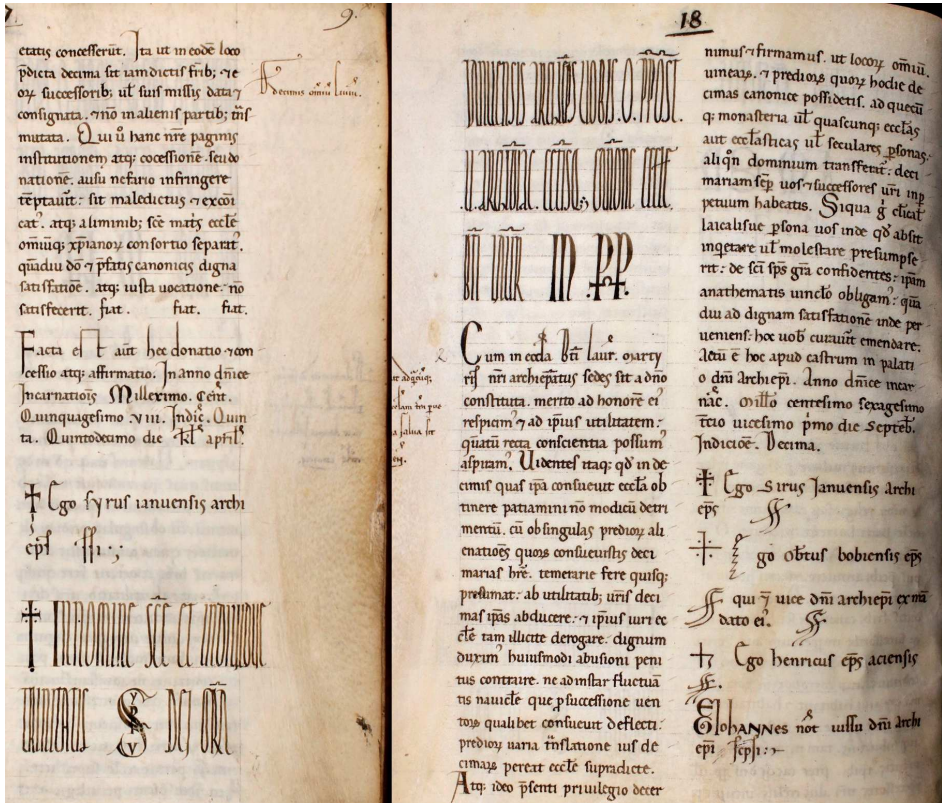 9.
etatis concesserūt. Ita ut in eodē loco
p̄dicta decima sit iamdictis fr̄ib; ⁊ e
oꝝ successorib; ul̄ suis missis data ⁊
consignata. ⁊ nō in alienis partib; tn̄s
mutata. Qui ū hanc nr̄e paginis
institutionem atq; cōcessionē. seu do
nationē. ausu nefario infringere
tēptauīt: sit maledictus ⁊ excōi
cat᷒. atq; aliminib; sc̄e mat̄s eccl̄e
omiūq; xp̄ianoꝝ consortio separat᷒.
quādiu dō ⁊ p̄fatis canonicis digna
satisfatiōe. atq; iusta uocatione. nō
satisfecerit. fiat. fiat. fiat.
Facta est aut̄ hec donatio ⁊ con
cessio atq; affirmatio. In anno dn̄ice
Incarnatiōis Milleximo. Cent̄.
Quinquagesimo .viii. Indic̄. Quin
ta. Quintodecimo die kl̄ april̄.
Decimis om̄iū
✝ Ego syrus ianuensis archi
ep̄s ss.
✝ In nomine sc̄e et indiuidue
trinitatis SYRVS dei gr̄a
18
ianuensis archiep̄s uobis. O. p̄post.
.V. archid̄iac̄. cet̄isq; canoīc̄ eccl̄e
bt̄i laur̄ IN PP
Cum in eccl̄a Bt̄i laur̄. marty
ris nr̄i archiep̄atus sedes sit a dn̄o
constituta. merito ad honorē ei᷒
respicim᷒ ⁊ ad ipsius utilitatem:
quātū recta conscientia possum᷒
aspiram᷒. Uidentes itaq; qd̄ in de
cimis quas ip̄a consueuit eccl̄a ob
tinere patiamini nō modicū detri
mentū. cū ob singulas predioꝝ ali
enatiōes quoꝝ consueuistis deci
marias hr̄e. temerarie fere quisq;
presumat: ab utilitatib; ur̄is deci
mas ip̄as abducere. ⁊ ipsius iuri ec
cl̄e tam illicite derogare. dignum
duxim᷒ huiusmodi abusioni peni
tus contraire. ne ad instar fluctuā
tis nauicl̄e que p successione uen
toꝝ qualibet consueuit deflecti:
predioꝝ uaria tn̄slatione ius de
cimaꝝ pereat eccl̄e supradicte.
Atq; ideo p̄senti priuilegio decer
nimus ⁊ firmamus. ut locoꝝ om̄iū.
uineaꝝ. ⁊ predioꝝ quoꝝ hodie de
cimas canonice possidetis. ad quecū
q; monasteria ul̄ quascunq; eccl̄as
aut eccl̄asticas ul̄ seculares psonas.
aliqn̄ dominium transferat᷒: deci
mariam semp uos ⁊ successores ur̄i inp
petuum habeatis. Siqua g̊ cl̄icat᷒
laicalisue psona uos inde qd̄ absit
inqietare ul̄ molestare presumpse
rit: de sc̄i sp̄s gr̄a confidentes: ip̄am
anathematis uincl̄o obligam᷒: quā
diu ad dignam satisfationē inde per
ueniens: hoc uob̄ curauīt emendare.
Actū ē hoc apud castrum in palati
o dn̄i Archiep̄i. Anno dn̄ice incar
nac̄. mill̄o centesimo sexagesimo
tc̄io uicesimo p̄mo die Septeb̄.
Indicioē. Decima.
✝ Ego Sirus Januensis archi
ep̄s ss
✝ Ego ob̄tus bobiensis ep̄s
ss qui ⁊ uice dn̄i archiep̄i ex mā
dato ei᷒. ss
✝ Ego henricus ep̄s aciensis
ss.
Ego IohANNES not̄ iussu dn̄i archi
ep̄i scps̄i